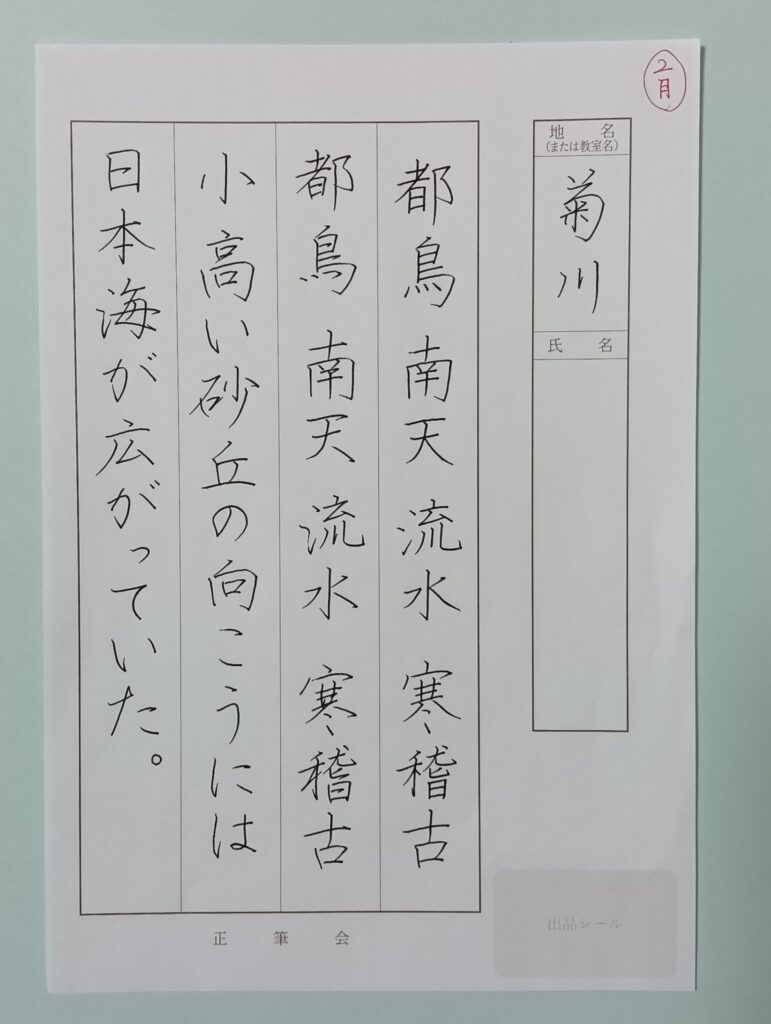 2月
地名
(または教室名)
菊川
氏名
都鳥 南天 流水 寒稽古
都鳥 南天 流水 寒稽古
小高い砂丘の向こうには
日本海が広がっていた。
正筆会
出品シール